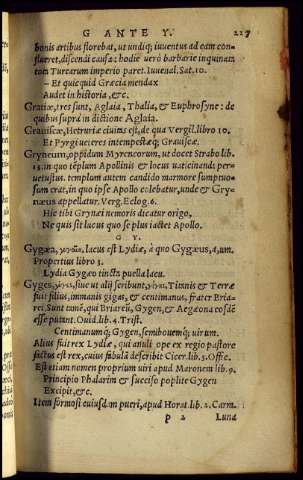 G ANTE Y. 227
bonis artibus florebat, ut undiq; iuventus ad eam con-
flueret, discendi causa: hodie verò barbarie inquinata
tota Turcarum imperio paret. Iuvenal. Sat. 10.
– Et quicquid Græcia mendax
Audet in historia, &c.
Gratiæ, tres sunt, Aglaia, Thalia, & Euphrosyne: de
quibus suprà in dictione Aglaia.
Graviscæ, Hetruriæ civitas est, de qua Vergil. libro 10.
Et Pyrgi veteres intempestæq; Graviscæ.
Gryneum, oppidum Myrenorum, ut docet Strabo lib.
13. in quo templum Apollinis & vaticinandi per-
vetustus. templum autem candido marmore sumptuo-
sum erat, in quo ipse Apollo colebatur, unde & Gry-
næus appellatur. Verg. Eclog. 6.
His tibi Grynæi nemoris dicatur origo,
Ne quis sit lucus quo se plus iactet Apollo.
G Y.
Gygæa, lacus est Lydiæ, à quo Gygæus, a, um.
Propertius libro 3.
Lydia Gygæo tincta puella lacu.
Gyges, sive ut alij scribunt, Titanis & Terræ
fuit filius, immanis gigas, & centimanus, frater Bria-
rei. Sunt tamē, qui Briareū, Gygen, & Aegæona eosdē
esse putant. Ovid. lib. 4. Trist.
Centimanumq; Gygen, semibovemq; virum.
Alius fuit rex Lydiæ, qui anuli ope ex regio pastore
factus est rex, cuius fabulā describit Cicer. lib. 3. Offic.
Est etiam nomen proprium viri apud Maronem lib. 9.
Principio Phalarin & succiso poplite Gygen
Excipit, &c.
Item formosi cuiusdam pueri, apud Horat. lib. 2. Carm.
p 2 Luna